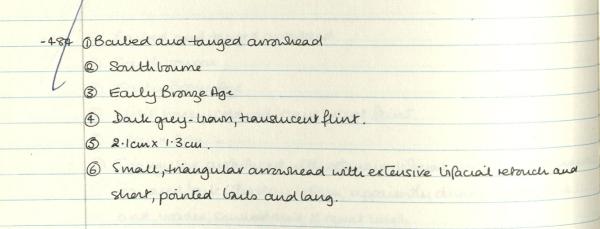 -484 ① Barbed and tanged arrowhead
② Southbourne
③ Early Bronze Age
④ Dark grey-brown, translucent flint.
⑤ 2.1cm x 1.3cm.
⑥ Small, triangular arrowhead with extensive bifacial retouch and
short, pointed barbs and tang.